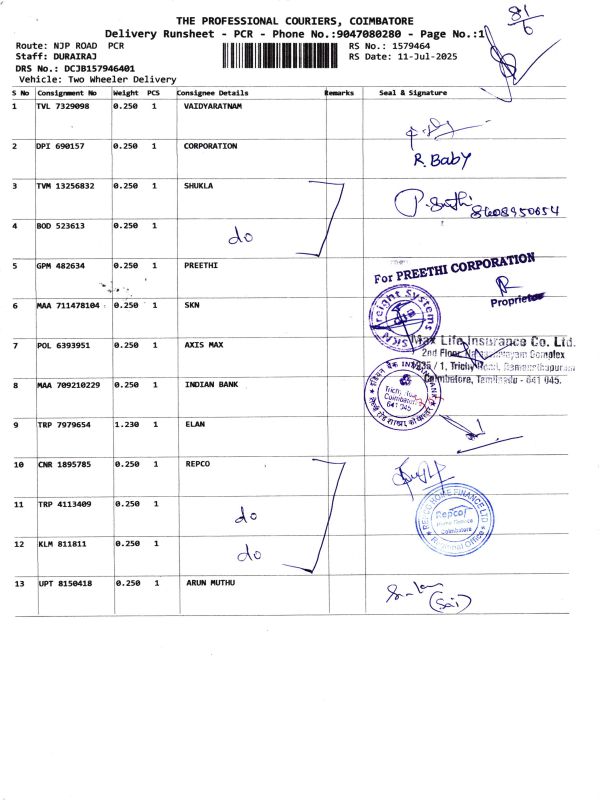 THE PROFESSIONAL COURIERS, COIMBATORE
Delivery Runsheet - PCR - Phone No.:9047080280 - Page No.:1
81/6
Route: NJP ROAD PCR
RS No.: 1579464
Staff: DURAIRAJ
RS Date: 11-Jul-2025
DRS No.: DCJB157946401
Vehicle: Two Wheeler Delivery
S No Consignment No Weight PCS Consignee Details Remarks Seal & Signature
1 TVL 7329098 0.250 1 VAIDYARATNAM
2 DPI 690157 0.250 1 CORPORATION
R. Baby
3 TVM 13256832 0.250 1 SHUKLA
8608950654
4 BOD 523613 0.250 1 do
5 GPM 482634 0.250 1 PREETHI
For PREETHI CORPORATION
Proprietor
6 MAA 711478104 0.250 1 SKN
SKN Freight Systems
7 POL 6393951 0.250 1 AXIS MAX
Max Life Insurance Co. Ltd.
2nd Floor Complex
/ 1, Trichy Road, Ramanathapuram
Coimbatore, Tamilnadu - 641 045.
8 MAA 709210229 0.250 1 INDIAN BANK
इंडियन बैंक INDIAN BANK
Coimbatore
641 045
9 TRP 7979654 1.230 1 ELAN
10 CNR 1895785 0.250 1 REPCO
REPCO HOME FINANCE LTD
Repco
Home Finance
Coimbatore
Regional Office
11 TRP 4113409 0.250 1 do
12 KLM 811811 0.250 1 do
13 UPT 8150418 0.250 1 ARUN MUTHU
(Sai)